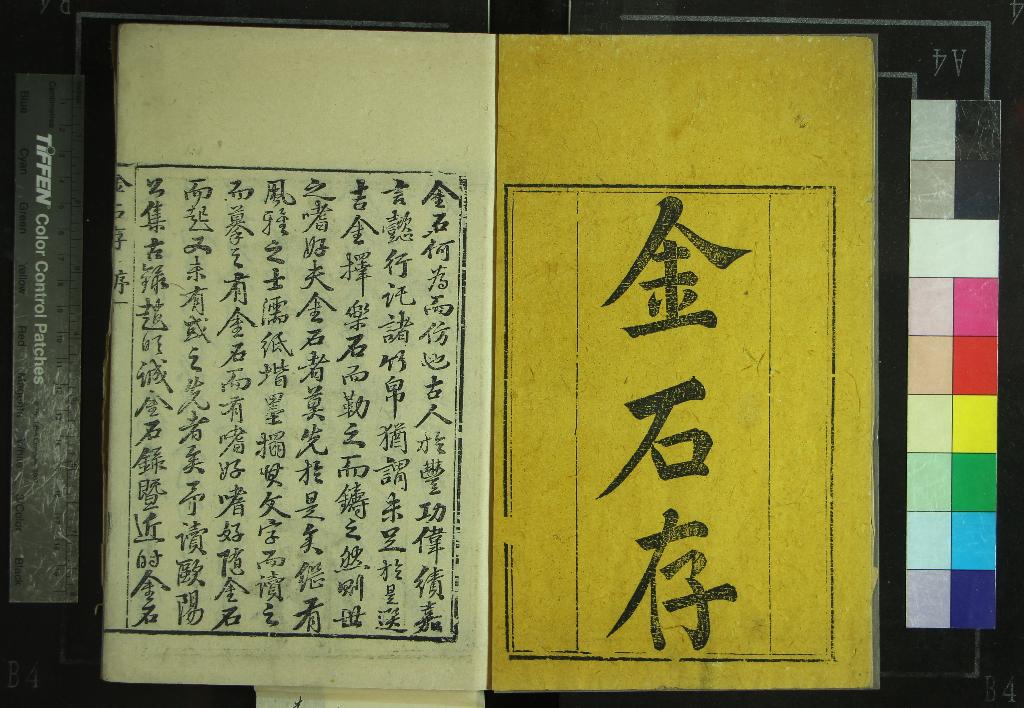 金石存
金石何為而仿也古人於豐功偉績嘉
言懿行託諸竹帛猶謂未足於是選
吉金擇樂石而勒之而鑄之然則世
之嗜好夫金石者莫先於是矣鑑有
風雅之士濡紙揩墨搨其文字而讀之
而摹之有金石而有嗜好嗜好隨金石
而起又未有或之先者矣予讀歐陽
公集古錄趙明誠金石錄暨近時金石
金石存 序 一
TIFFEN Color Control Patches
Blue
Cyan
Green
Yellow
Red
Magenta
White
3/Color
Black
A4
B4
B4